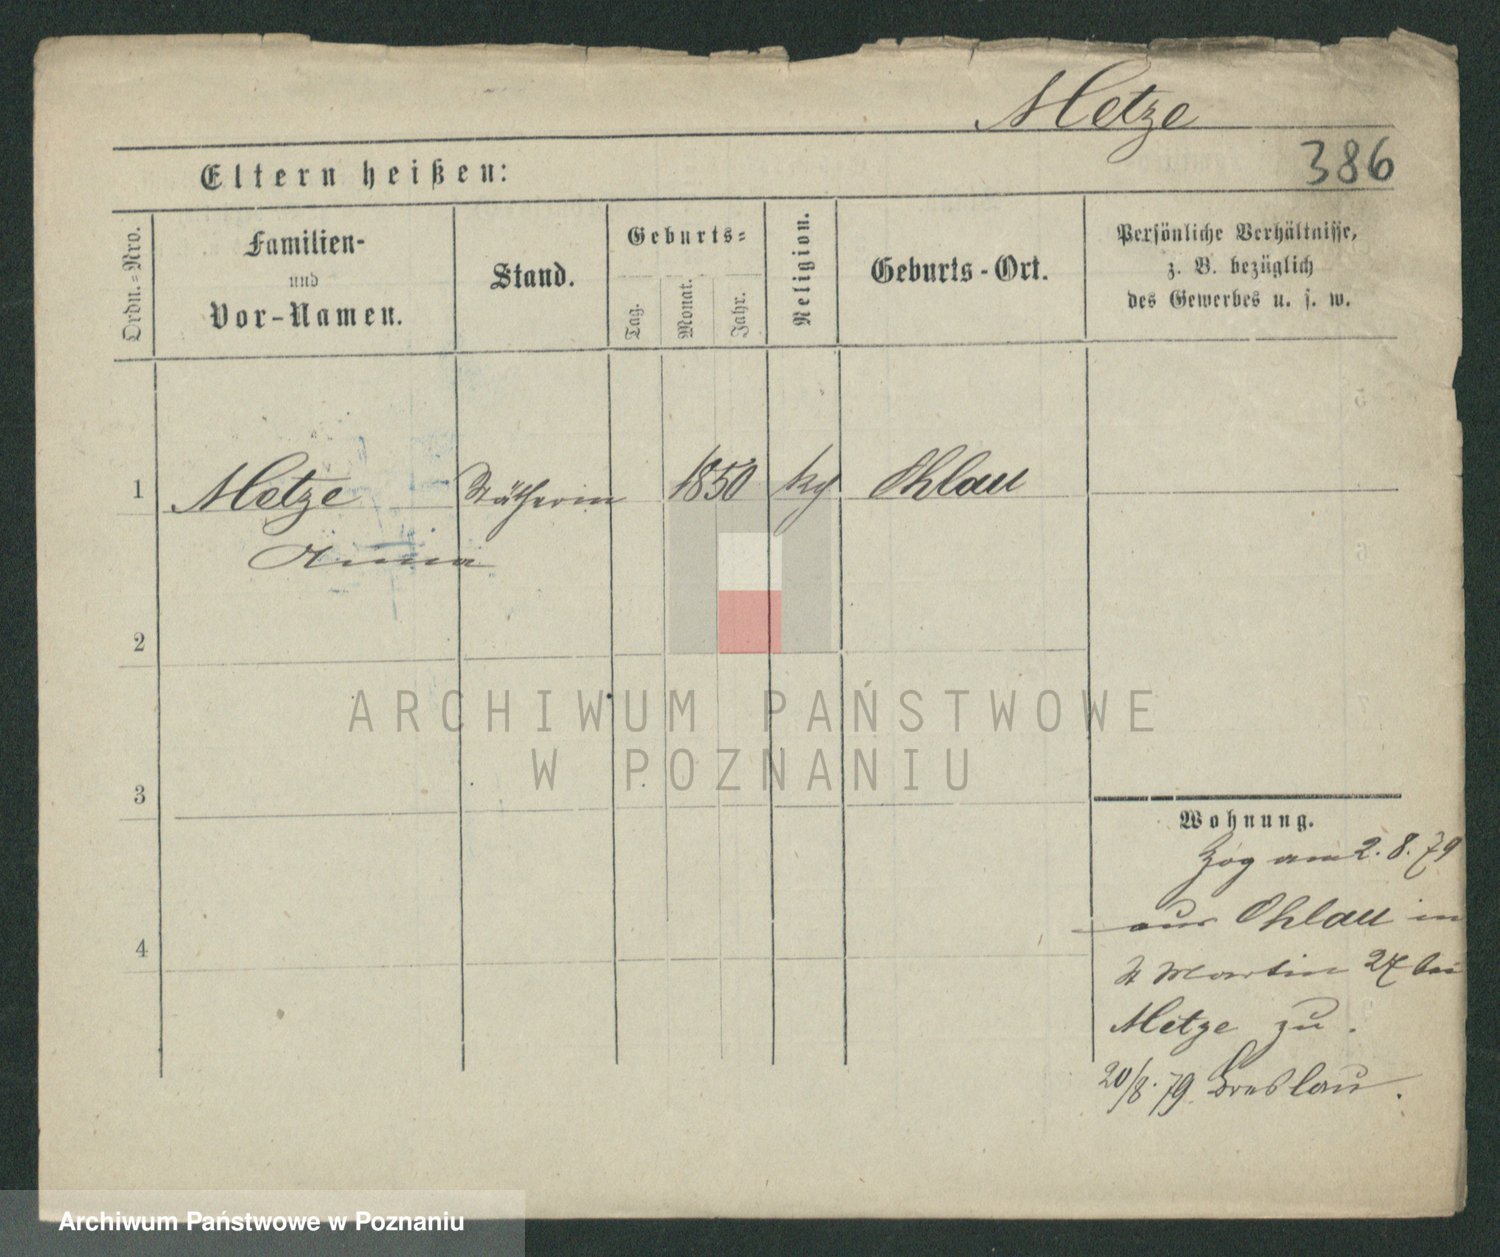 Metze
386
Eltern heißen:
Ordn.-Nro.
Familien-
und
Vor-Namen.
Stand.
Geburts-
Tag.
Monat.
Jahr.
Religion.
Geburts-Ort.
Persönliche Verhältnisse,
z. B. bezüglich
des Gewerbes u. s. w.
1 Metze Nätherin 1850 kg Ohlau
Anna
2
3
4
Wohnung.
Zog am 2. 8. 79
aus Ohlau in
St Martin 27 bei
Metze zu.
20/8. 79. Breslau.
ARCHIWUM PAŃSTWOWE
W POZNANIU
Archiwum Państwowe w Poznaniu